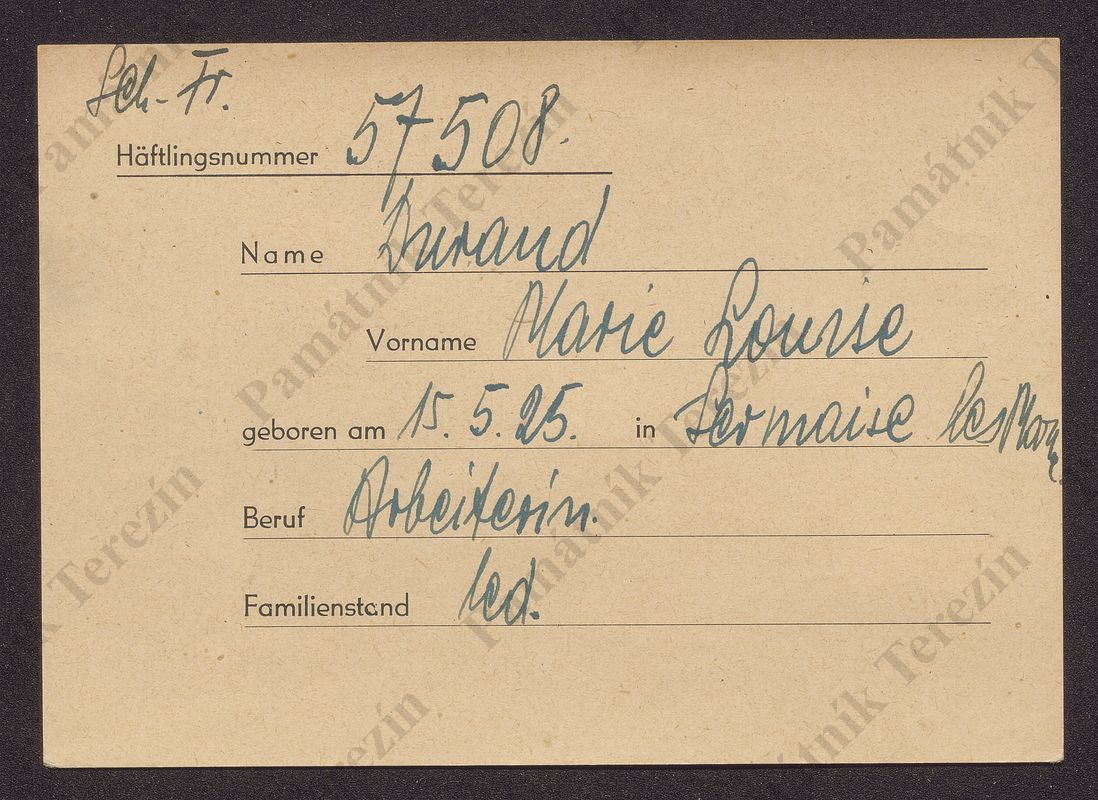 Sch-Fr.
Häftlingsnummer 57508.
Name Durand
Vorname Marie Louise
geboren am 15. 5. 25. in Sermaise les
Beruf Arbeiterin.
Familienstand led.
Památník Terezín